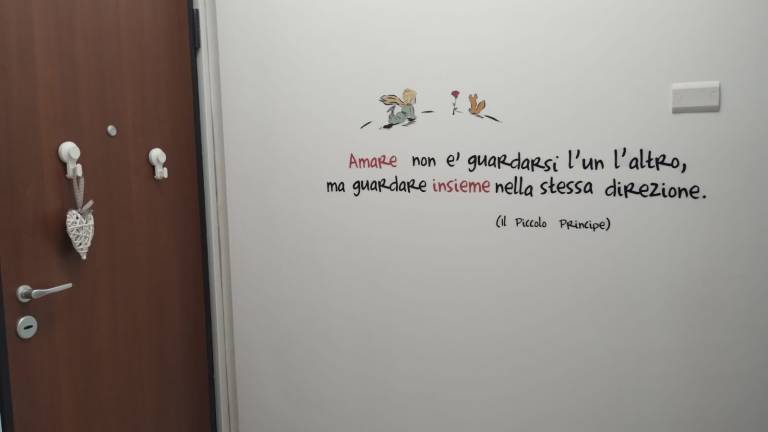 Amare non e' guardarsi l'un l'altro,
ma guardare insieme nella stessa direzione.
(Il Piccolo Principe)